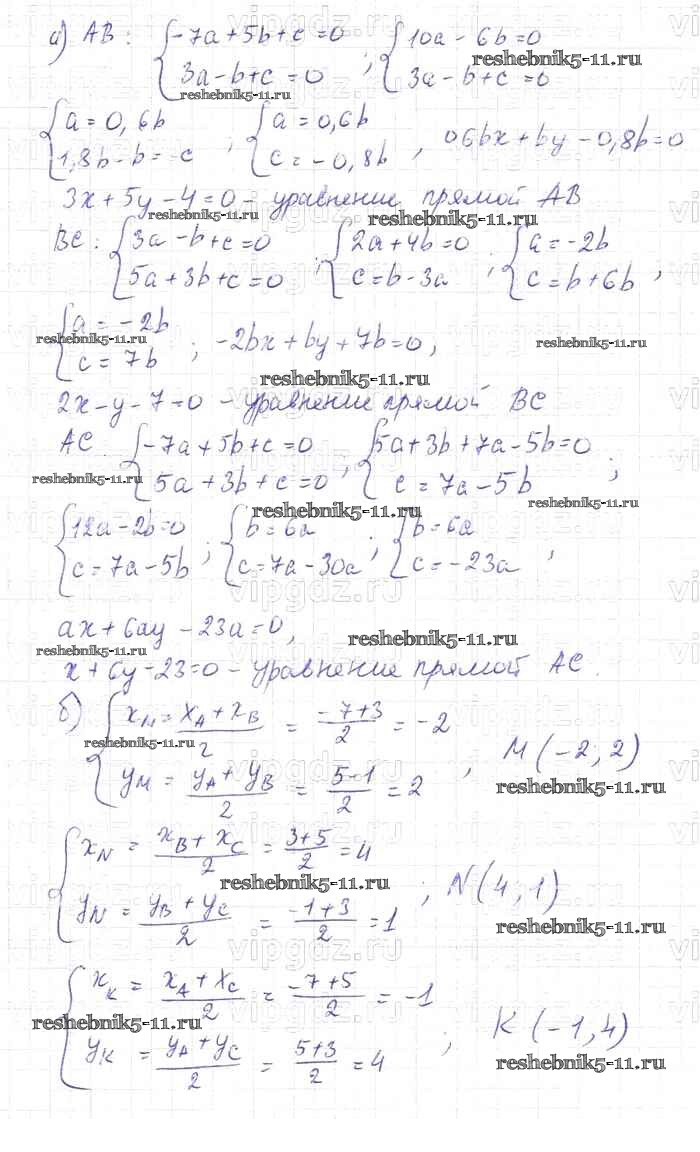 а) AB: { -7a+5b+c=0 ; { 10a-6b=0
3a-b+c=0 3a-b+c=0
reshebnik5-11.ru
reshebnik5-11.ru
{ a=0,6b ; { a=0,6b , 06bx+by-0,8b=0
1,8b-b=-c c=-0,8b
3x+5y-4=0 - уравнение прямой AB
reshebnik5-11.ru reshebnik5-11.ru
BC: { 3a-b+c=0 ; { 2a+4b=0 ; { a=-2b
5a+3b+c=0 c=b-3a c=b+6b ,
{ a=-2b ; -2bx+by+7b=0,
c=7b
reshebnik5-11.ru reshebnik5-11.ru
reshebnik5-11.ru
2x-y-7=0 - уравнение прямой BC
AC { -7a+5b+c=0 , { 5a+3b+7a-5b=0 ;
5a+3b+c=0 c=7a-5b
reshebnik5-11.ru reshebnik5-11.ru
reshebnik5-11.ru
{ 12a-2b=0 ; { b=6a ; { b=6a ,
c=7a-5b c=7a-30a c=-23a
ax+6ay-23a=0,
reshebnik5-11.ru reshebnik5-11.ru
x+6y-23=0 - уравнение прямой AC.
б) { x_M = (x_A+x_B)/2 = (-7+3)/2 = -2
y_M = (y_A+y_B)/2 = (5-1)/2 = 2 , M(-2; 2)
reshebnik5-11.ru reshebnik5-11.ru
{ x_N = (x_B+x_C)/2 = (3+5)/2 = 4
y_N = (y_B+y_C)/2 = (-1+3)/2 = 1 ; N(4; 1)
reshebnik5-11.ru reshebnik5-11.ru
{ x_K = (x_A+x_C)/2 = (-7+5)/2 = -1
y_K = (y_A+y_C)/2 = (5+3)/2 = 4 ; K(-1,4)
reshebnik5-11.ru reshebnik5-11.ru